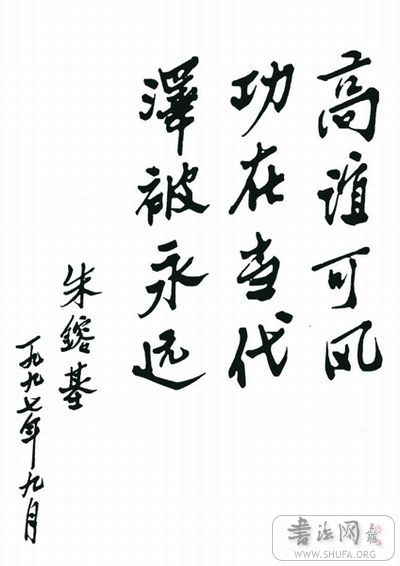 高谊可风
功在当代
澤被永远
朱鎔基
一九九七年九月
书法网
WWW.SHUFA.ORG